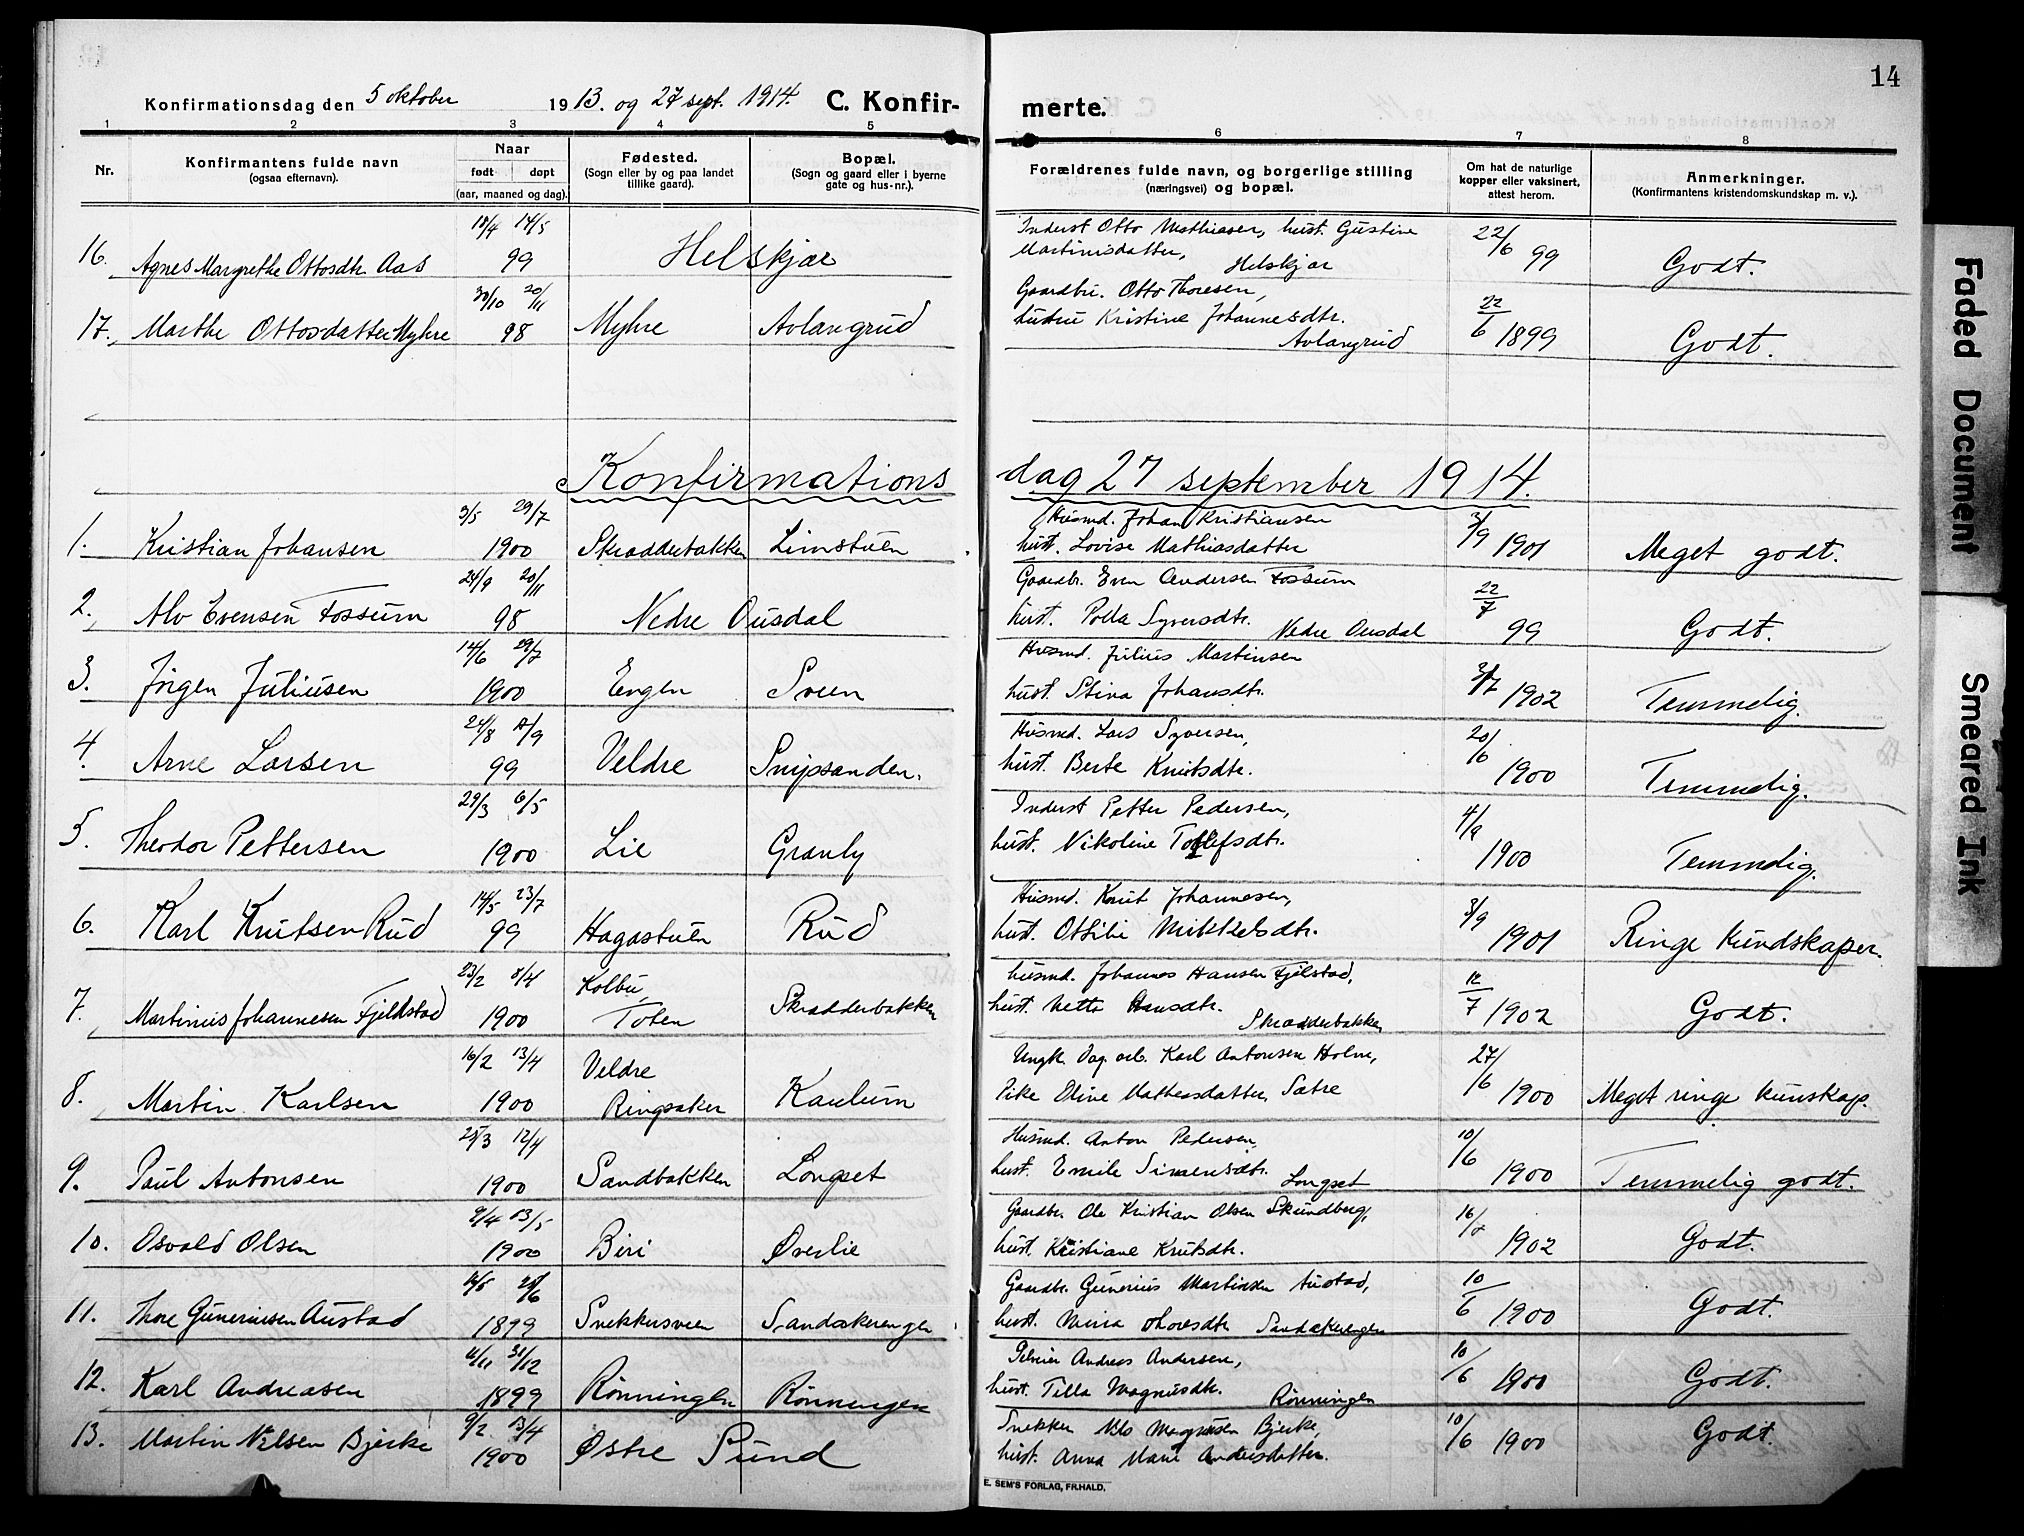 14
Konfirmationsdag den 5 oktober 1913. og 27 sept. 1914. C. Konfirmerte.
1 2 3 4 5 6 7 8
Nr.
Konfirmantens fulde navn
(ogsaa efternavn).
Naar
født døpt
(aar, maaned og dag).
Fødested.
(Sogn eller by og paa landet
tillike gaard).
Bopæl.
(Sogn og gaard eller i byerne
gate og hus-nr.).
Forældrenes fulde navn, og borgerlige stilling
(næringsvei) og bopæl.
Om hat de naturlige
kopper eller vaksinert,
attest herom.
Anmerkninger.
(Konfirmantens kristendomskundskap m. v.).
18/4 14/5 Inderst Otto Mathiasen, hust. Gustine
16. Agnes Margrethe Ottosdtr. Aas 99 Helskjær Martinusdatter, Helskjær 22/6 99 Godt.
30/10 20/11 Gaardbr. Otto Thoresen,
17. Marthe Ottosdatter Myhre 98 Myhre Avlangrud hustru Kristine Johannesdtr. Avlangrud 22/6 1899 Godt.
Konfirmationsdag 27 september 1914.
3/5 29/7 Husmd. Johan Kristiansen
1. Kristian Johansen 1900 Skrædderbakken Limstuen hust. Lovise Mathiasdatter 3/9 1901 Meget godt.
24/9 20/11 Gaardbr. Even Andersen Fossum
2. Alv Evensen Fossum 98 Nedre Ousdal hust. Polla Syversdtr. Nedre Ousdal 22/7 99 Godt.
14/6 29/7 Husmd. Julius Martinsen
3. Jörgen Juliusen 1900 Engen Sveen hust. Stina Johansdtr. 3/7 1902 Temmelig.
24/8 Husmd. Lars Syversen,
4. Arne Larsen 99 Veldre Snipsanden. hust. Berte Knutsdtr. 20/6 1900 Temmelig.
29/3 6/5 Inderst Petter Pedersen,
5. Theodor Pettersen 1900 Lie Granly hust. Nikoline Tollefsdtr. 4/9 1900 Temmelig.
14/5 23/7 Husmd. Knut Johannesen,
6. Karl Knutsen Rud 99 Hagastuen Rud hust. Othilie Mikkelsdtr. 3/9 1901 Ringe kundskaper.
23/2 8/4 Kolbu, husmd. Johannes Hansen Fjelstad,
7. Martinius Johannesen Fjeldstad 1900 Toten Skrædderbakken hust. Netta Hansdtr. Skrædderbakken 12/7 1902 Godt.
16/2 13/4 Veldre Ungk. Dag. arb. Karl Antonsen Holm,
8. Martin Karlsen 1900 Ringsaker Kaulum Pike Eline Matheasdatter Sætre 27/6 1900 Meget ringe kunskap.
25/3 12/4 Husmd. Anton Pedersen,
9. Paul Antonsen 1900 Sandbakken Longset hust. Emile Simensdtr. Longset 10/6 1900 Temmelig godt.
9/4 13/5 Gaardbr. Ole Kristian Olsen Skundberg,
10. Osvald Olsen 1900 Biri Øverlie hust. Kristiane Knutsdtr. 1902 Godt.
Gaardbr. Gunerius Martinsen Austad,
11. Thore Guneriusen Austad 1899 Snekkersveen Sandakerengen hust. Mina Thoresdtr. Sandakerengen 10/6 1900 Godt.
4/11 31/12 Andreas Andersen,
12. Karl Andreasen 1899 Rønningen Rønningen hust. Tilla Magnusdtr. Rønningen 10/6 1900 Godt.
9/2 13/4 Snekker Nils Magnusen Bjerke,
13. Martin Nilsen Bjerke 1900 Østre Sund hust. Anna Marie Andersdatter. 10/6 1900 Godt.
E. SEM'S FORLAG, FR.HALD.
Faded Document
Smeared Ink